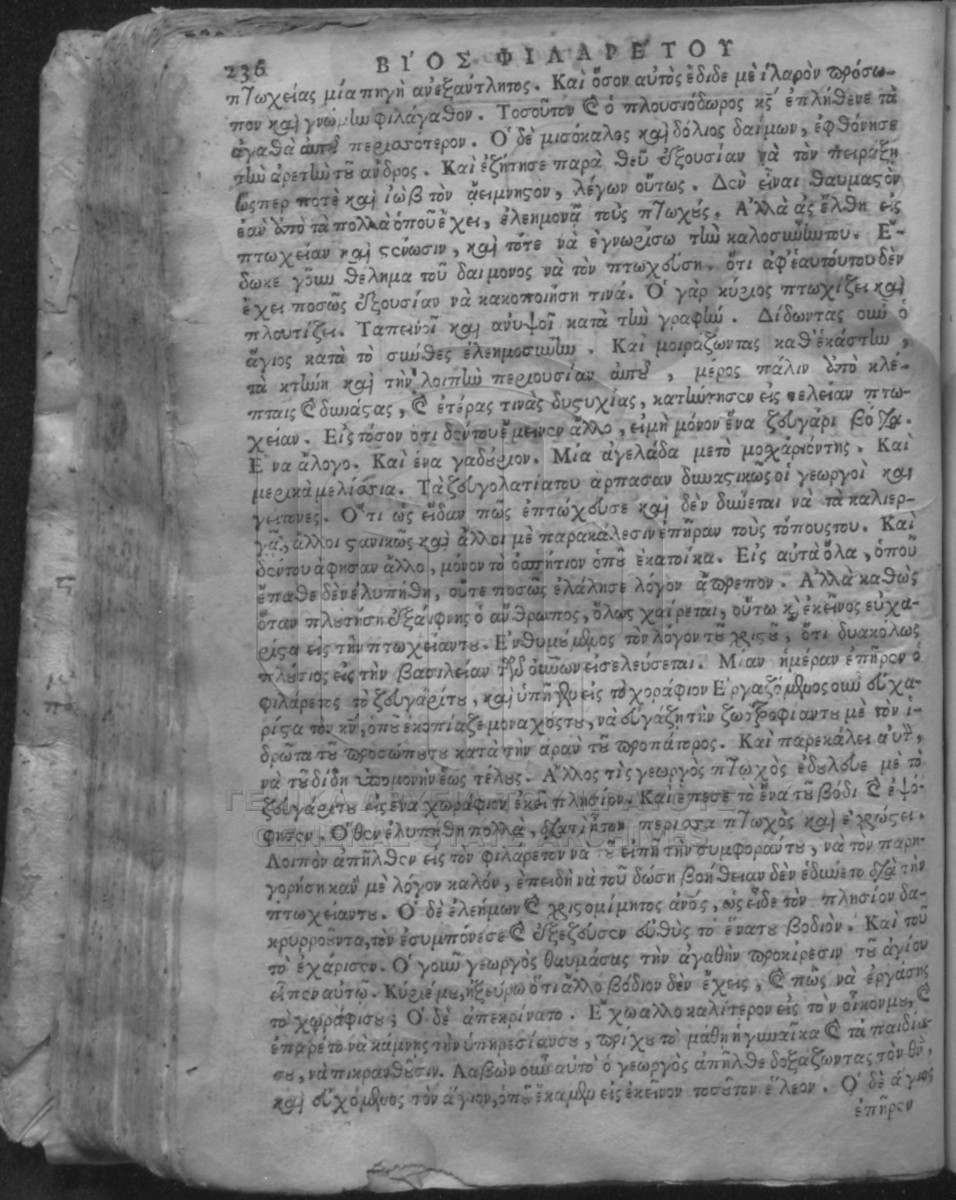 236 ΒΊΟΣ ΦΙΛΑΡΕΤΟΥ
πτωχείας μία πηγὴ ἀνεξάντλητος. Καὶ ὅσον αὐτὸς ἔδιδε μὲ ἱλαρὸν πρόσω-
πον καὶ γνώμην φιλάγαθον. Τοσοῦτον καὶ ὁ πλουσιόδωρος κς̄ ἐπλήθενε τὰ
ἀγαθὰ αὐτοῦ περισσότερον. Ὁ δὲ μισόκαλος καὶ δόλιος δαίμων, ἐφθόνησε
τὴν ἀρετὴν τοῦ ἀνδρος. Καὶ ἐζήτησε παρὰ θεοῦ ἐξουσίαν νὰ τὸν πειράξῃ
ὥσπερ ποτὲ καὶ ἰὼβ τὸν ἀείμνηστον, λέγων οὕτως. Δὲν εἶναι θαυμαστὸν
ἐὰν ἀπὸ τὰ πολλὰ ὁποῦ ἔχει, ἐλεημονᾷ τοὺς πτωχούς. Ἀλλὰ ἂς ἔλθῃ εἰς
πτωχείαν καὶ στένωσιν, καὶ τότε νὰ ἐγνωρίσω τὴν καλοσύνην του. Ἔ-
δωκε γοῦν θέλημα τοῦ δαίμονος νὰ τὸν πτωχεύσῃ. ὅτι ἀφ' ἑαυτού του δὲν
ἔχει ποσῶς ἐξουσίαν νὰ κακοποιήσῃ τινά. Ὁ γὰρ κύριος πτωχίζει καὶ
πλουτίζει. Ταπεινοῖ καὶ ἀνυψοῖ κατὰ τὴν γραφήν. Δίδωντας οὖν ὁ
ἅγιος κατὰ τὸ σύνηθες ἐλεημοσύνην. Καὶ μοιράζωντας καθ' ἑκάστην,
τὰ κτήνη καὶ τὴν λοιπὴν περιουσίαν αὐτοῦ, μέρος πάλιν ἀπὸ κλέ-
πταις καὶ δυνάστας, καὶ ἑτέρας τινὰς δυστυχίας, κατήντησεν εἰς τελείαν πτω-
χείαν. Εἰς τόσον ὅτι δὲν τοῦ ἔμεινεν ἄλλο, εἰμὴ μόνον ἕνα ζευγάρι βόδια.
Ἕνα ἄλογο. Καὶ ἕνα γαδούριον. Μία ἀγελάδα μετὸ μοσχάριόν της. Καὶ
μερικὰ μελίσσια. Τὰ ζευγολατία του ἅρπασαν δυναστικῶς οἱ γεωργοὶ καὶ
γείτονες. Ὅτι ὡς εἶδαν πῶς ἐπτώχευσε καὶ δὲν δύνεται νὰ τὰ καλιερ-
γᾷ, ἄλλοι τυρανικῶς καὶ ἄλλοι μὲ παρακάλεσιν ἐπῆραν τοὺς τόπους του. Καὶ
δὲν τοῦ ἄφησαν ἄλλο, μόνον τὸ ὀσπήτιον ὁποῦ ἐκατοίκα. Εἰς αὐτὰ ὅλα, ὁποῦ
ἔπαθε δὲν ἐλυπήθη, οὔτε ποσῶς ἐλάλησε λόγον ἄπρεπον. Ἀλλὰ καθὼς
ὅταν πλουτήσῃ ἐξαίφνης ὁ ἄνθρωπος, ὅλως χαίρεται, οὕτω καὶ ἐκεῖνος εὐχα-
ρίστα εἰς τὴν πτωχείαν του. Ἐνθυμούμενος τὸν λόγον τοῦ χριστοῦ, ὅτι δυσκόλως
πλούσιος εἰς τὴν βασιλείαν τῶν οὐρανῶν εἰσελεύσεται. Μίαν ἡμέραν ἐπῆρεν ὁ
φιλάρετος τὸ ζευγάρι του, καὶ ὑπῆγεν εἰς τὸ χοράφιον Ἐργαζόμενος οὖν εὐχα-
ρίστα τὸν κν̄, ὁποῦ ἐκοπίαζε μοναχός του, νὰ εὐγάζῃ τὴν ζωοτροφίαν του μὲ τὸν ἱ-
δρῶτα τοῦ προσώπου του κατὰ τὴν ἀρὰν τοῦ προπάτορος. Καὶ παρεκάλει αὐτὸν,
νὰ τοῦ δίδῃ ὑπομονὴν ἕως τέλους. Ἄλλος τὶς γεωργὸς πτωχὸς ἐδούλευε μὲ τὸ
ζευγάρι του εἰς ἕνα χωράφιον ἐκεῖ πλησίον. Καὶ ἔπεσε τὸ ἕνα του βόδι καὶ ἐψό-
φησεν. Ὅθεν ἐλυπήθη πολλὰ, διατὶ ἦτον περίσσα πτωχὸς καὶ ἐχρώστει.
Λοιπὸν ἀπῆλθεν εἰς τὸν φιλάρετον νὰ τοῦ εἰπῇ τὴν συμφοράν του, νὰ τὸν παρη-
γορήσῃ κᾂν μὲ λόγον καλόν, ἐπειδὴ νὰ τοῦ δώσῃ βοήθειαν δὲν ἐδύνετο διὰ τὴν
πτωχείαν του. Ὁ δὲ ἐλεήμων καὶ χριστομίμητος ἀνο̄ς, ὡς εἶδε τὸν πλησίον δα-
κρυρροῦντα, τὸν ἐσυμπόνεσε καὶ ἐξέζευσεν εὐθὺς τὸ ἕνα του βόδιον. Καὶ τοῦ
τὸ ἐχάρισεν. Ὁ γοῦν γεωργὸς θαυμάσας τὴν ἀγαθὴν προαίρεσιν τοῦ ἁγίου
εἶπεν αὐτῷ. Κύριέ μου, ἠξεύρω ὅτι ἄλλο βόδιον δὲν ἔχεις, καὶ πῶς νὰ ἐργάσῃς
τὸ χωράφι σου; Ὁ δὲ ἀπεκρίνατο. Ἔχω ἄλλο καλίτερον εἰς τὸν οἶκον μου, καὶ
ἔπαρέ το νὰ κάμνῃς τὴν ὑπηρεσίαν σου, πρὶ χοῦ τὸ μάθῃ ἡ γυναῖκα καὶ τὰ παιδία
σου, νὰ πικρανθοῦσιν. Λαβὼν οὖν αὐτὸ ὁ γεωργὸς ἀπῆλθε δοξάζωντας τὸν θν̄,
καὶ εὐχόμενος τὸν ἅγιον, ὁποῦ ἔκαμεν εἰς ἐκεῖνον τοσοῦτον ἔλεον. Ὁ δὲ ἅγιος
ἐπῆρεν
ΓΕΝΙΚΑ ΑΡΧΕΙΑ ΤΟΥ ΚΡΑΤΟΥΣ
GENERAL STATE ARCHIVES